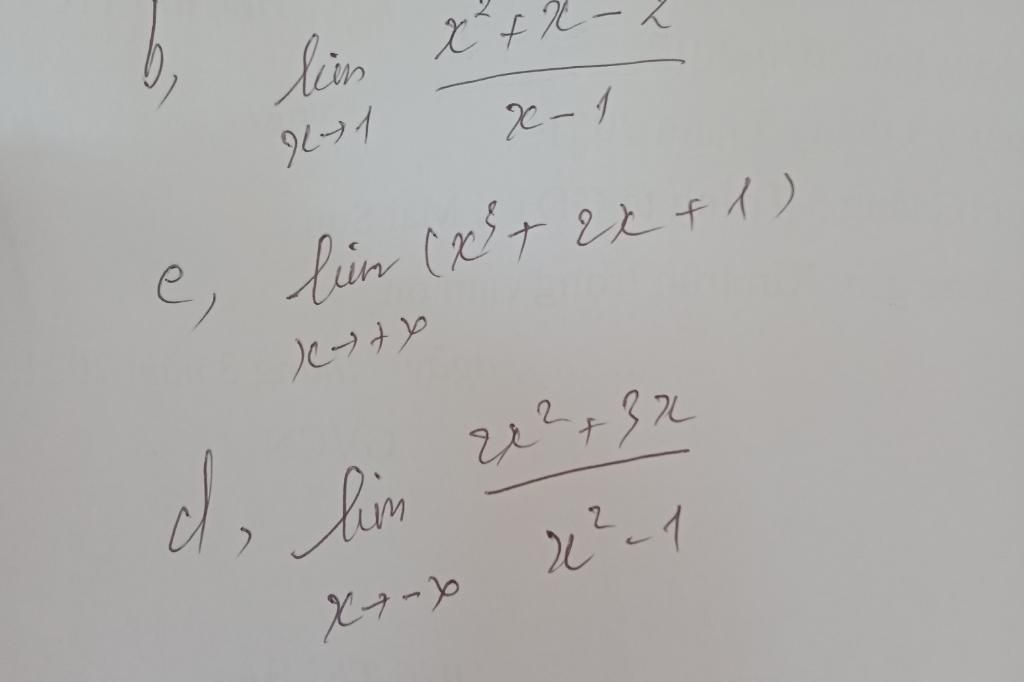 b, lim x² + x - 2
x→1 x - 1
c, lim (x³ + 2x + 1)
x→+∞
d, lim 2x² + 3x
x→-∞ x² - 1